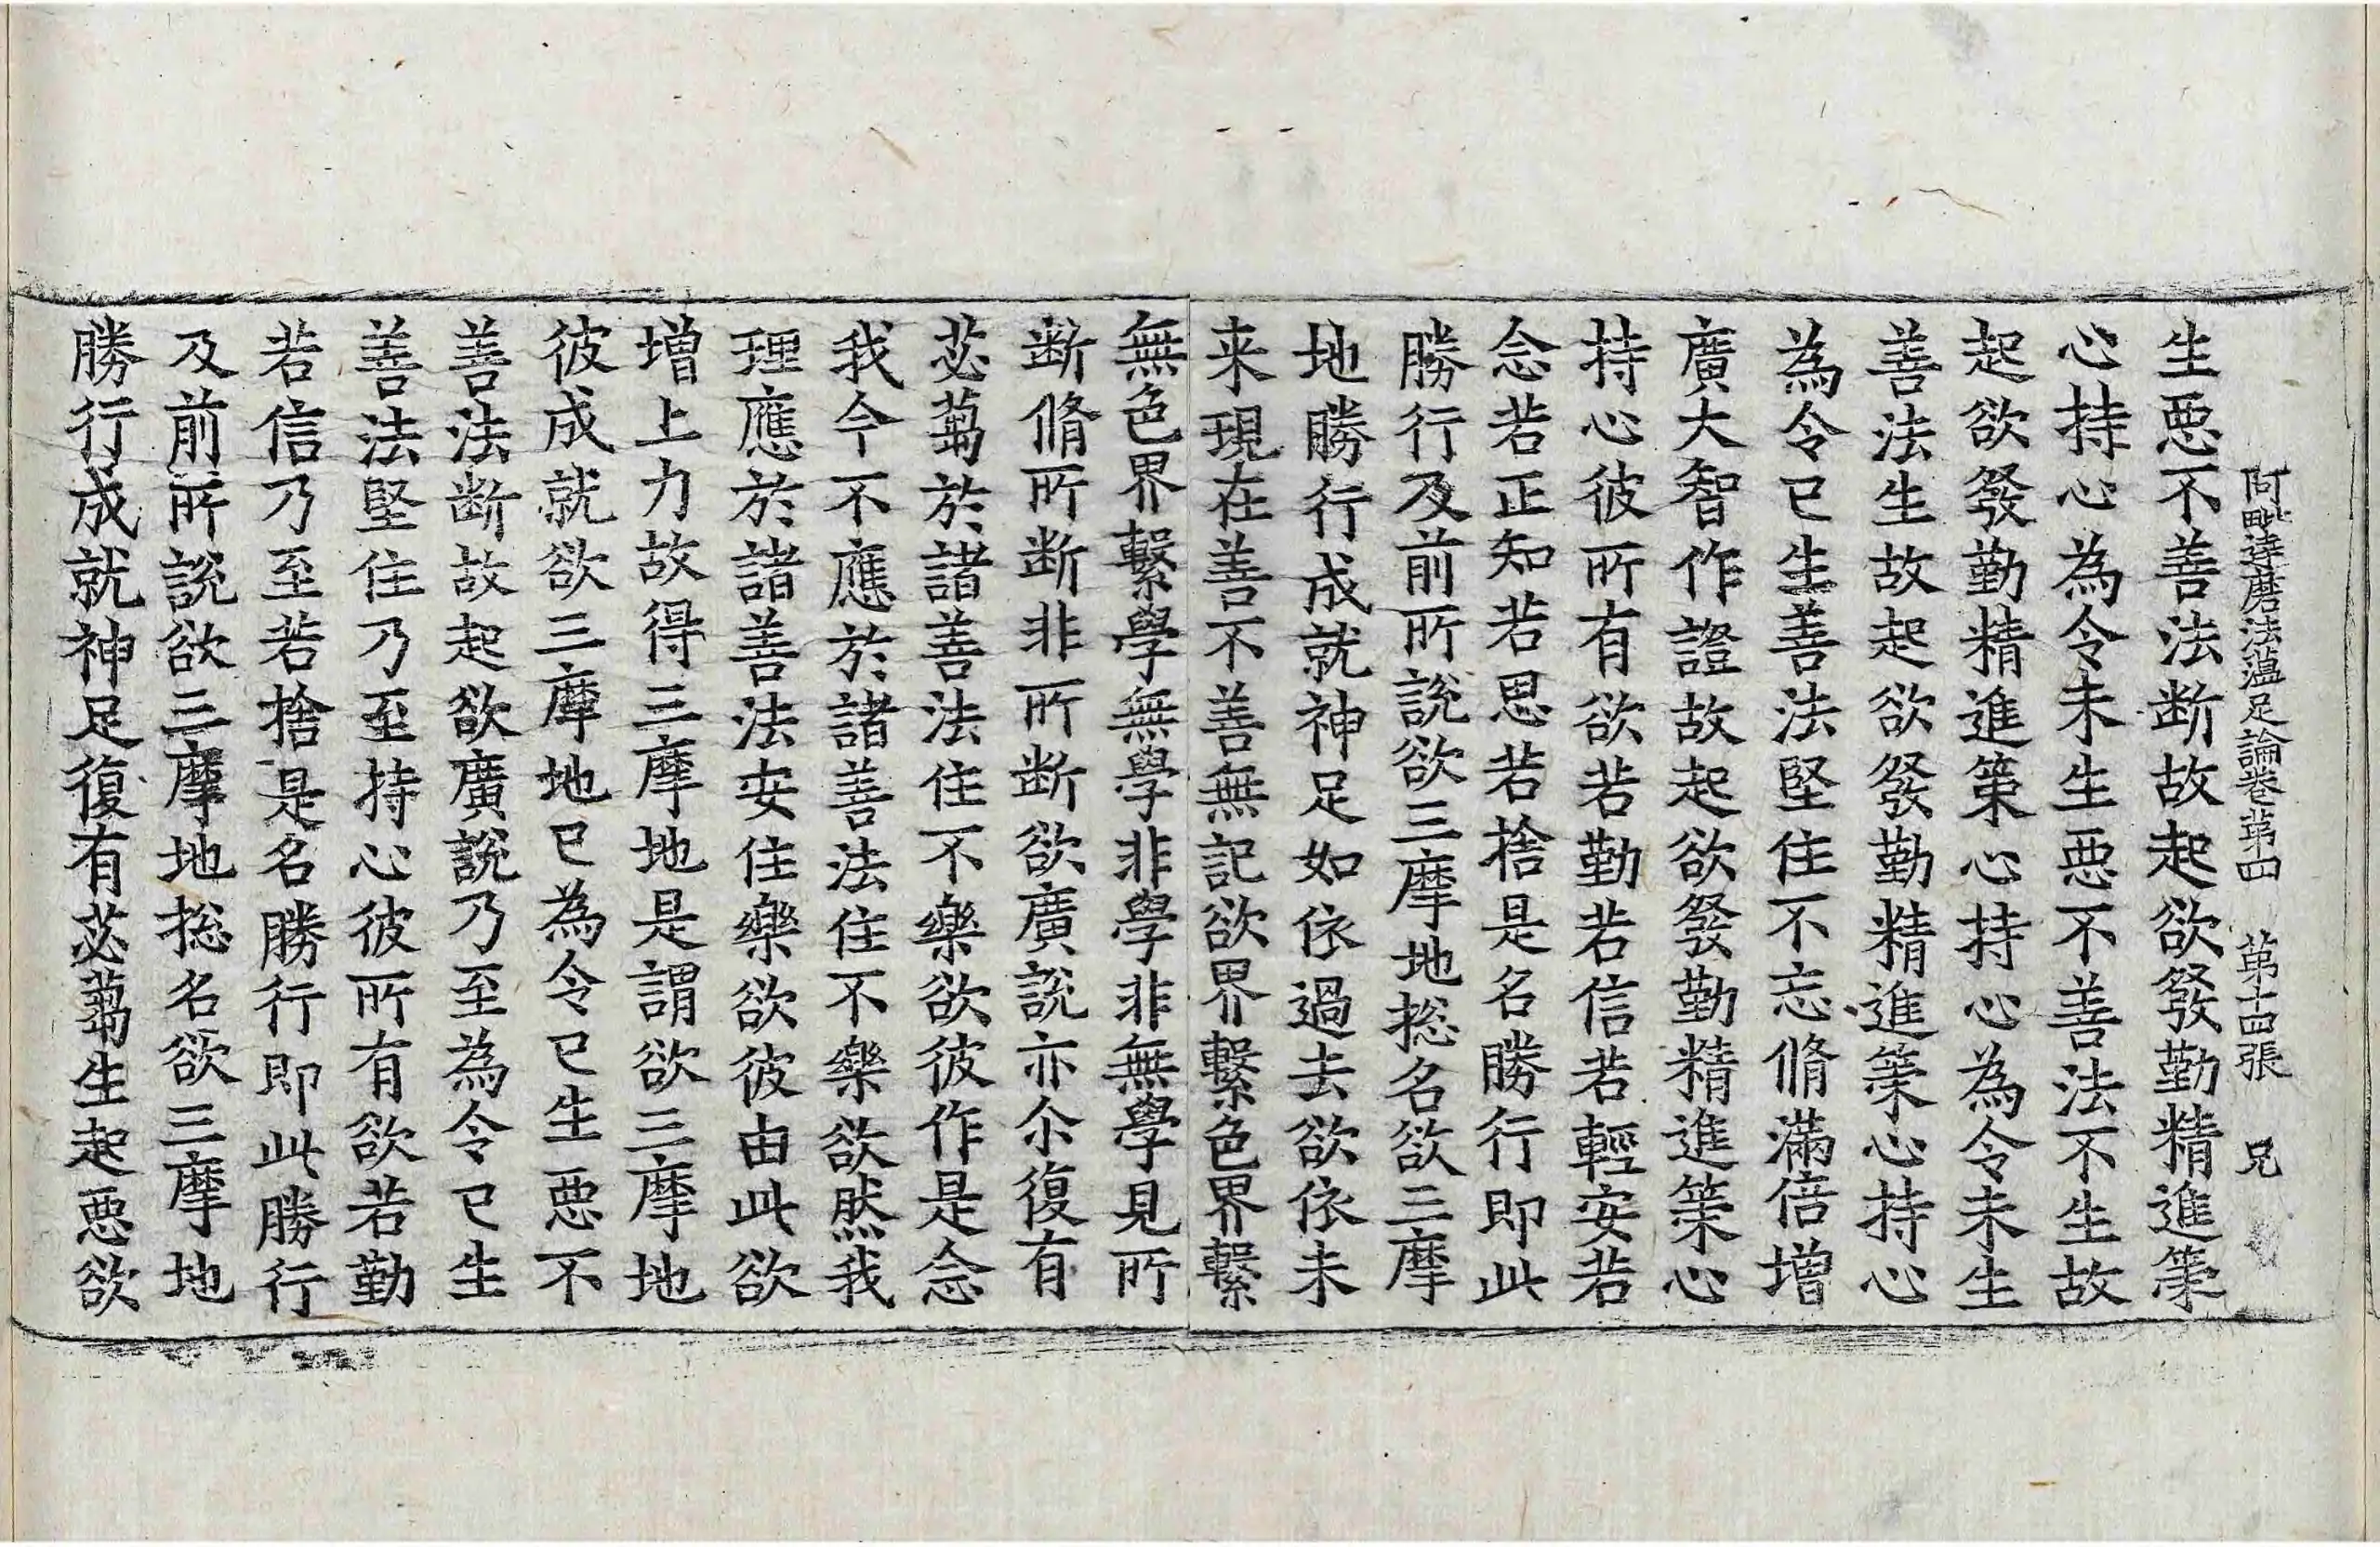 阿毗達磨法蘊足論卷第四　第十四張　兄
生惡不善法断故起欲發勤精進策
心持心為令未生惡不善法不生故
起欲發勤精進策心持心為令未生
善法生故起欲發勤精進策心持心
為令已生善法堅住不忘脩滿倍增
廣大智作證故起欲發勤精進策心
持心彼所有欲若勤若信若輕安若
念若正知若思若捨是名勝行即此
勝行及前所說欲三摩地捴名欲三摩
地勝行成就神足如依過去欲依未
来現在善不善無記欲界繫色界繫
無色界繫學無學非學非無學見所
断脩所断非所断欲廣說亦尒復有
苾蒭於諸善法住不樂欲彼作是念
我今不應於諸善法住不樂欲然我
理應於諸善法安住樂欲彼由此欲
增上力故得三摩地是謂欲三摩地
彼成就欲三摩地已為令已生惡不
善法断故起欲廣說乃至為令已生
善法堅住乃至持心彼所有欲若勤
若信乃至若捨是名勝行即此勝行
及前所說欲三摩地捴名欲三摩地
勝行成就神足復有苾蒭生起惡欲